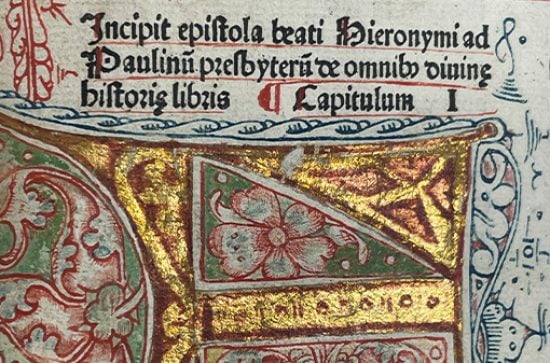 Incipit epistola beati Hieronymi ad
Paulinū presbyterū de omnibꝰ diuinę
historię libris ¶ Capitulum I